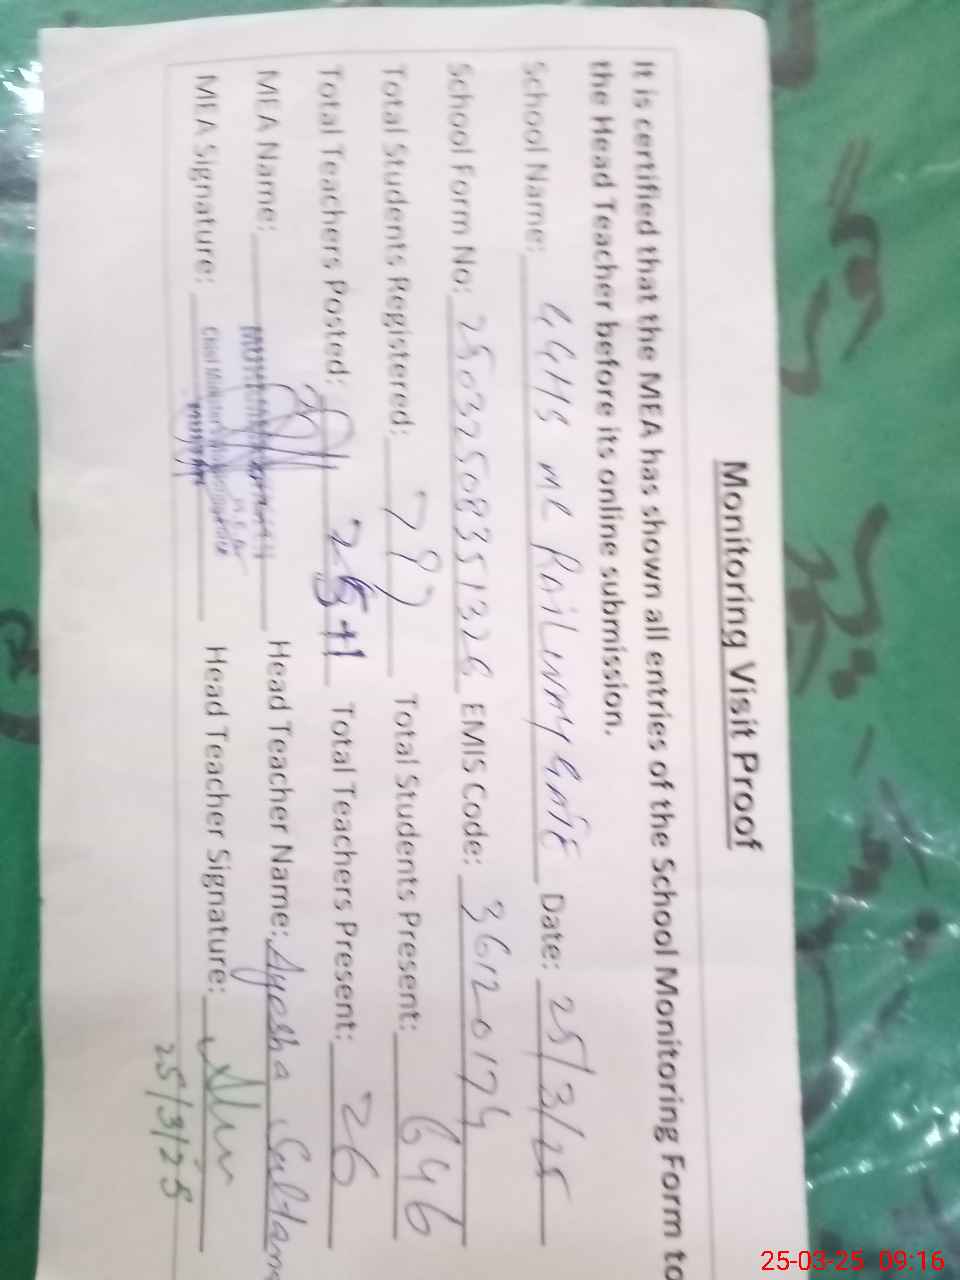 Monitoring Visit Proof
It is certified that the MEA has shown all entries of the School Monitoring Form to
the Head Teacher before its online submission.
School Name: GGHS MC RAILWAY GATE Date: 25/3/25
School Form No: 25032508351326 EMIS Code: 36120174
Total Students Registered: 797 Total Students Present: 646
Total Teachers Posted: 25+1 Total Teachers Present: 26
MEA Name: Head Teacher Name: Ayesha Sultana
MEA Signature: Head Teacher Signature:
25/3/25
25-03-25 09:16